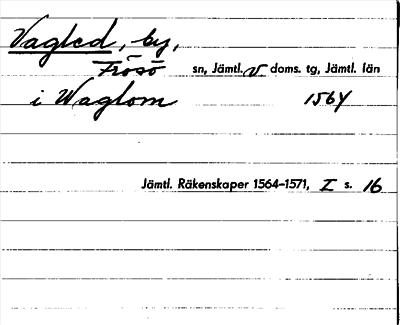 Vagled, by,
Frösö sn, Jämtl. v doms. tg, Jämtl. län
i Waglom 1564
Jämtl. Räkenskaper 1564–1571, I s. 16